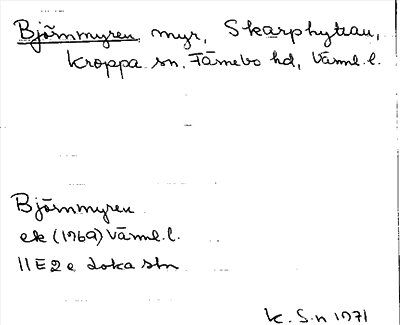 Björnmyren, myr, Skarphyttan,
Kroppa sn. Färnebo hd, Värml. l.
Björnmyren
ek (1969) Värml. l.
11E2e Loka stn
K. S-n 1971